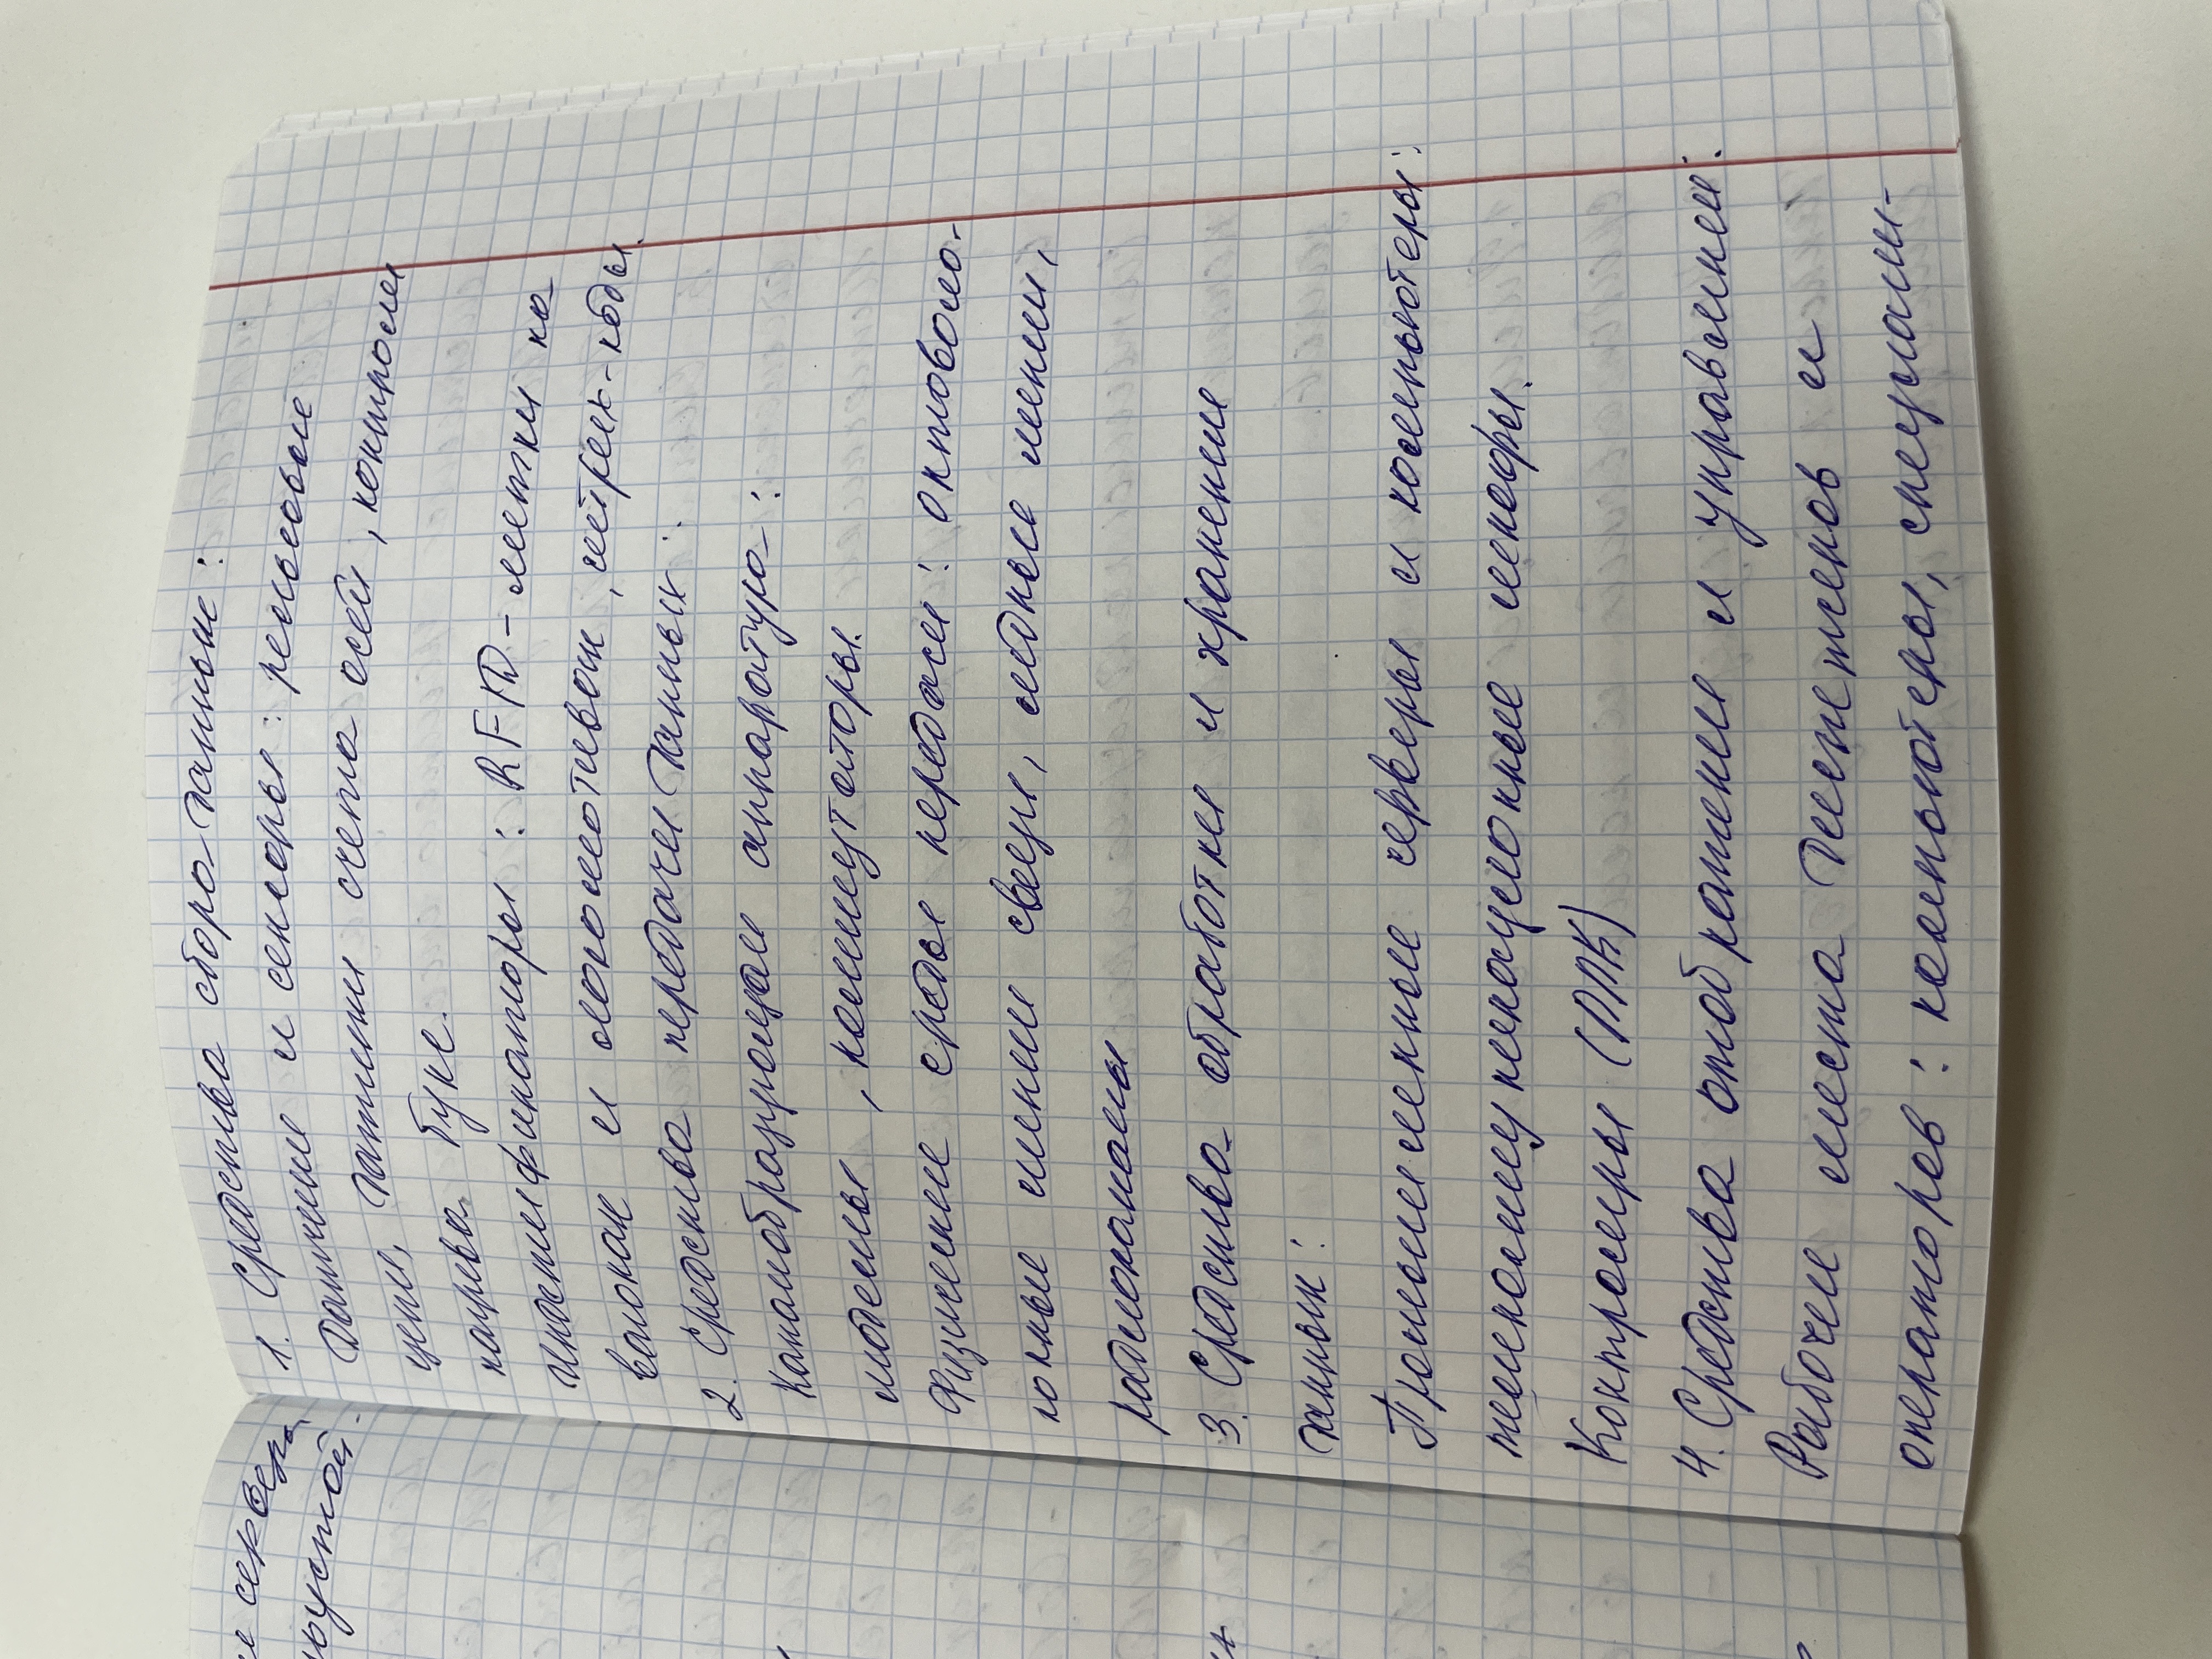 е сервера
пустой.
1. Средства сбора данных:
Датчики и сенсоры: рельсовые
цепи, датчики счета осей, контроля
нагрева букс.
Идентификаторы: RFID-метки на
вагонах и локомотивах, штрих-коды.
2. Средства передачи данных:
Каналообразующая аппаратура:
модемы, коммутаторы.
Физические среды передачи: оптоволо-
конные линии связи, медные линии,
радиоканалы
3. Средства обработки и хранения
данных:
Промышленные серверы и компьютеры:
телекоммуникационные шкафы.
Контролеры (ПЛК)
4. Средства отображения и управления:
Рабочие места диспетчеров и
операторов: компьютеры, специали-